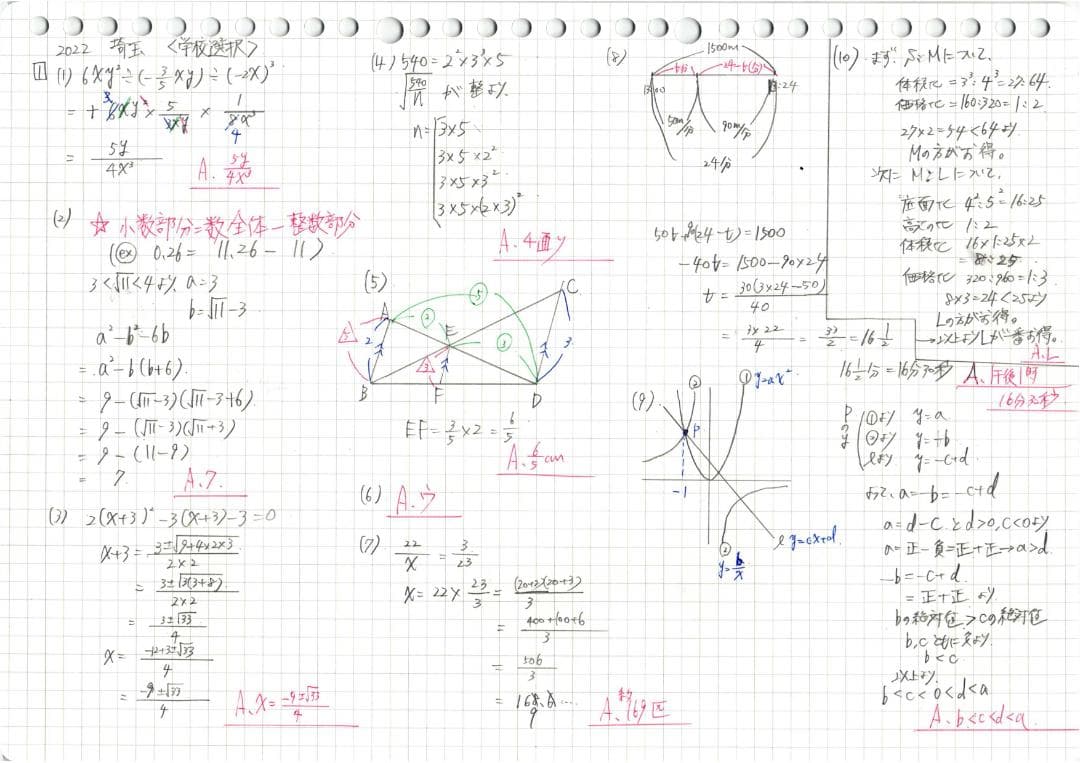 2022 埼玉 〈学校選択〉
1
(1) 6xy²÷(-3/5xy)÷(-2x)³
= +6xy²×5/3xy×1/8x³
3 4
= 5y/4x³
A. 5y/4x³
(2)
☆ 小数部分=数全体-整数部分
(ex) 0.26 = 11.26 - 11)
3<√11<4より a=3
b=√11-3
a²-b²-6b
= a²-b(b+6)
= 9-(√11-3)(√11-3+6)
= 9-(√11-3)(√11+3)
= 9-(11-9)
= 7
A.7
(3) 2(x+3)²-3(x+3)-3=0
x+3= 3±√9+4×2×3/2×2
= 3±√3(3+8)/2×2
= 3±√33/4
x= -12+3±√33/4
= -9±√33/4
A.x= -9±√33/4
(4) 540=2²×3³×5
√540/n が整より
n= 3×5
3×5×2²
3×5×3²
3×5×(2×3)²
A.4
(5)
A B C D E F
5 2 3
2 3 5 3
EF= 3/5×2= 6/5
A. 6/5cm
(6) A.ウ
(7) 22/x = 3/23
x= 22×23/3 = (20+2)(20+3)/3
= 400+100+6/3
= 506/3
= 168.6…
9
A.約169匹
(8)
1500m
t分 24-t(分)
13:00 :24
50m/分 90m/分
24分
50t+90(24-t)=1500
-40t=1500-90×24
t= 30(3×24-50)/40
= 3×22/4 = 33/2 = 16 1/2
16 1/2分=16分30秒
A.午後1時
16分30秒
(9)
② ① y=ax²
P
-1
ℓ y=cx+d
②
y=b/x
Pのy
①より y=a
②より y=-b
ℓより y=-c+d
よって、a=-b=-c+d
a=d-c とd>0,c<0より
a=正-負=正+正→a>d
-b=-c+d
=正+正 より
bの絶対値>cの絶対値
b,cともに負より
b<c
以上より
b<c<0<d<a
A.b<c<d<a
(10) まず、SとMについて、
体積比=3³:4³=27:64
価格比=160:320=1:2
27×2=54<64より
Mの方がお得。
次に MとLについて、
底面比 4²:5²=16:25
高さの比 1:2
体積比 16×1:25×2
= 8:25
価格比 320:960=1:3
8×3=24<25より
Lの方がお得。
→以上よりLが一番お得。
A.L